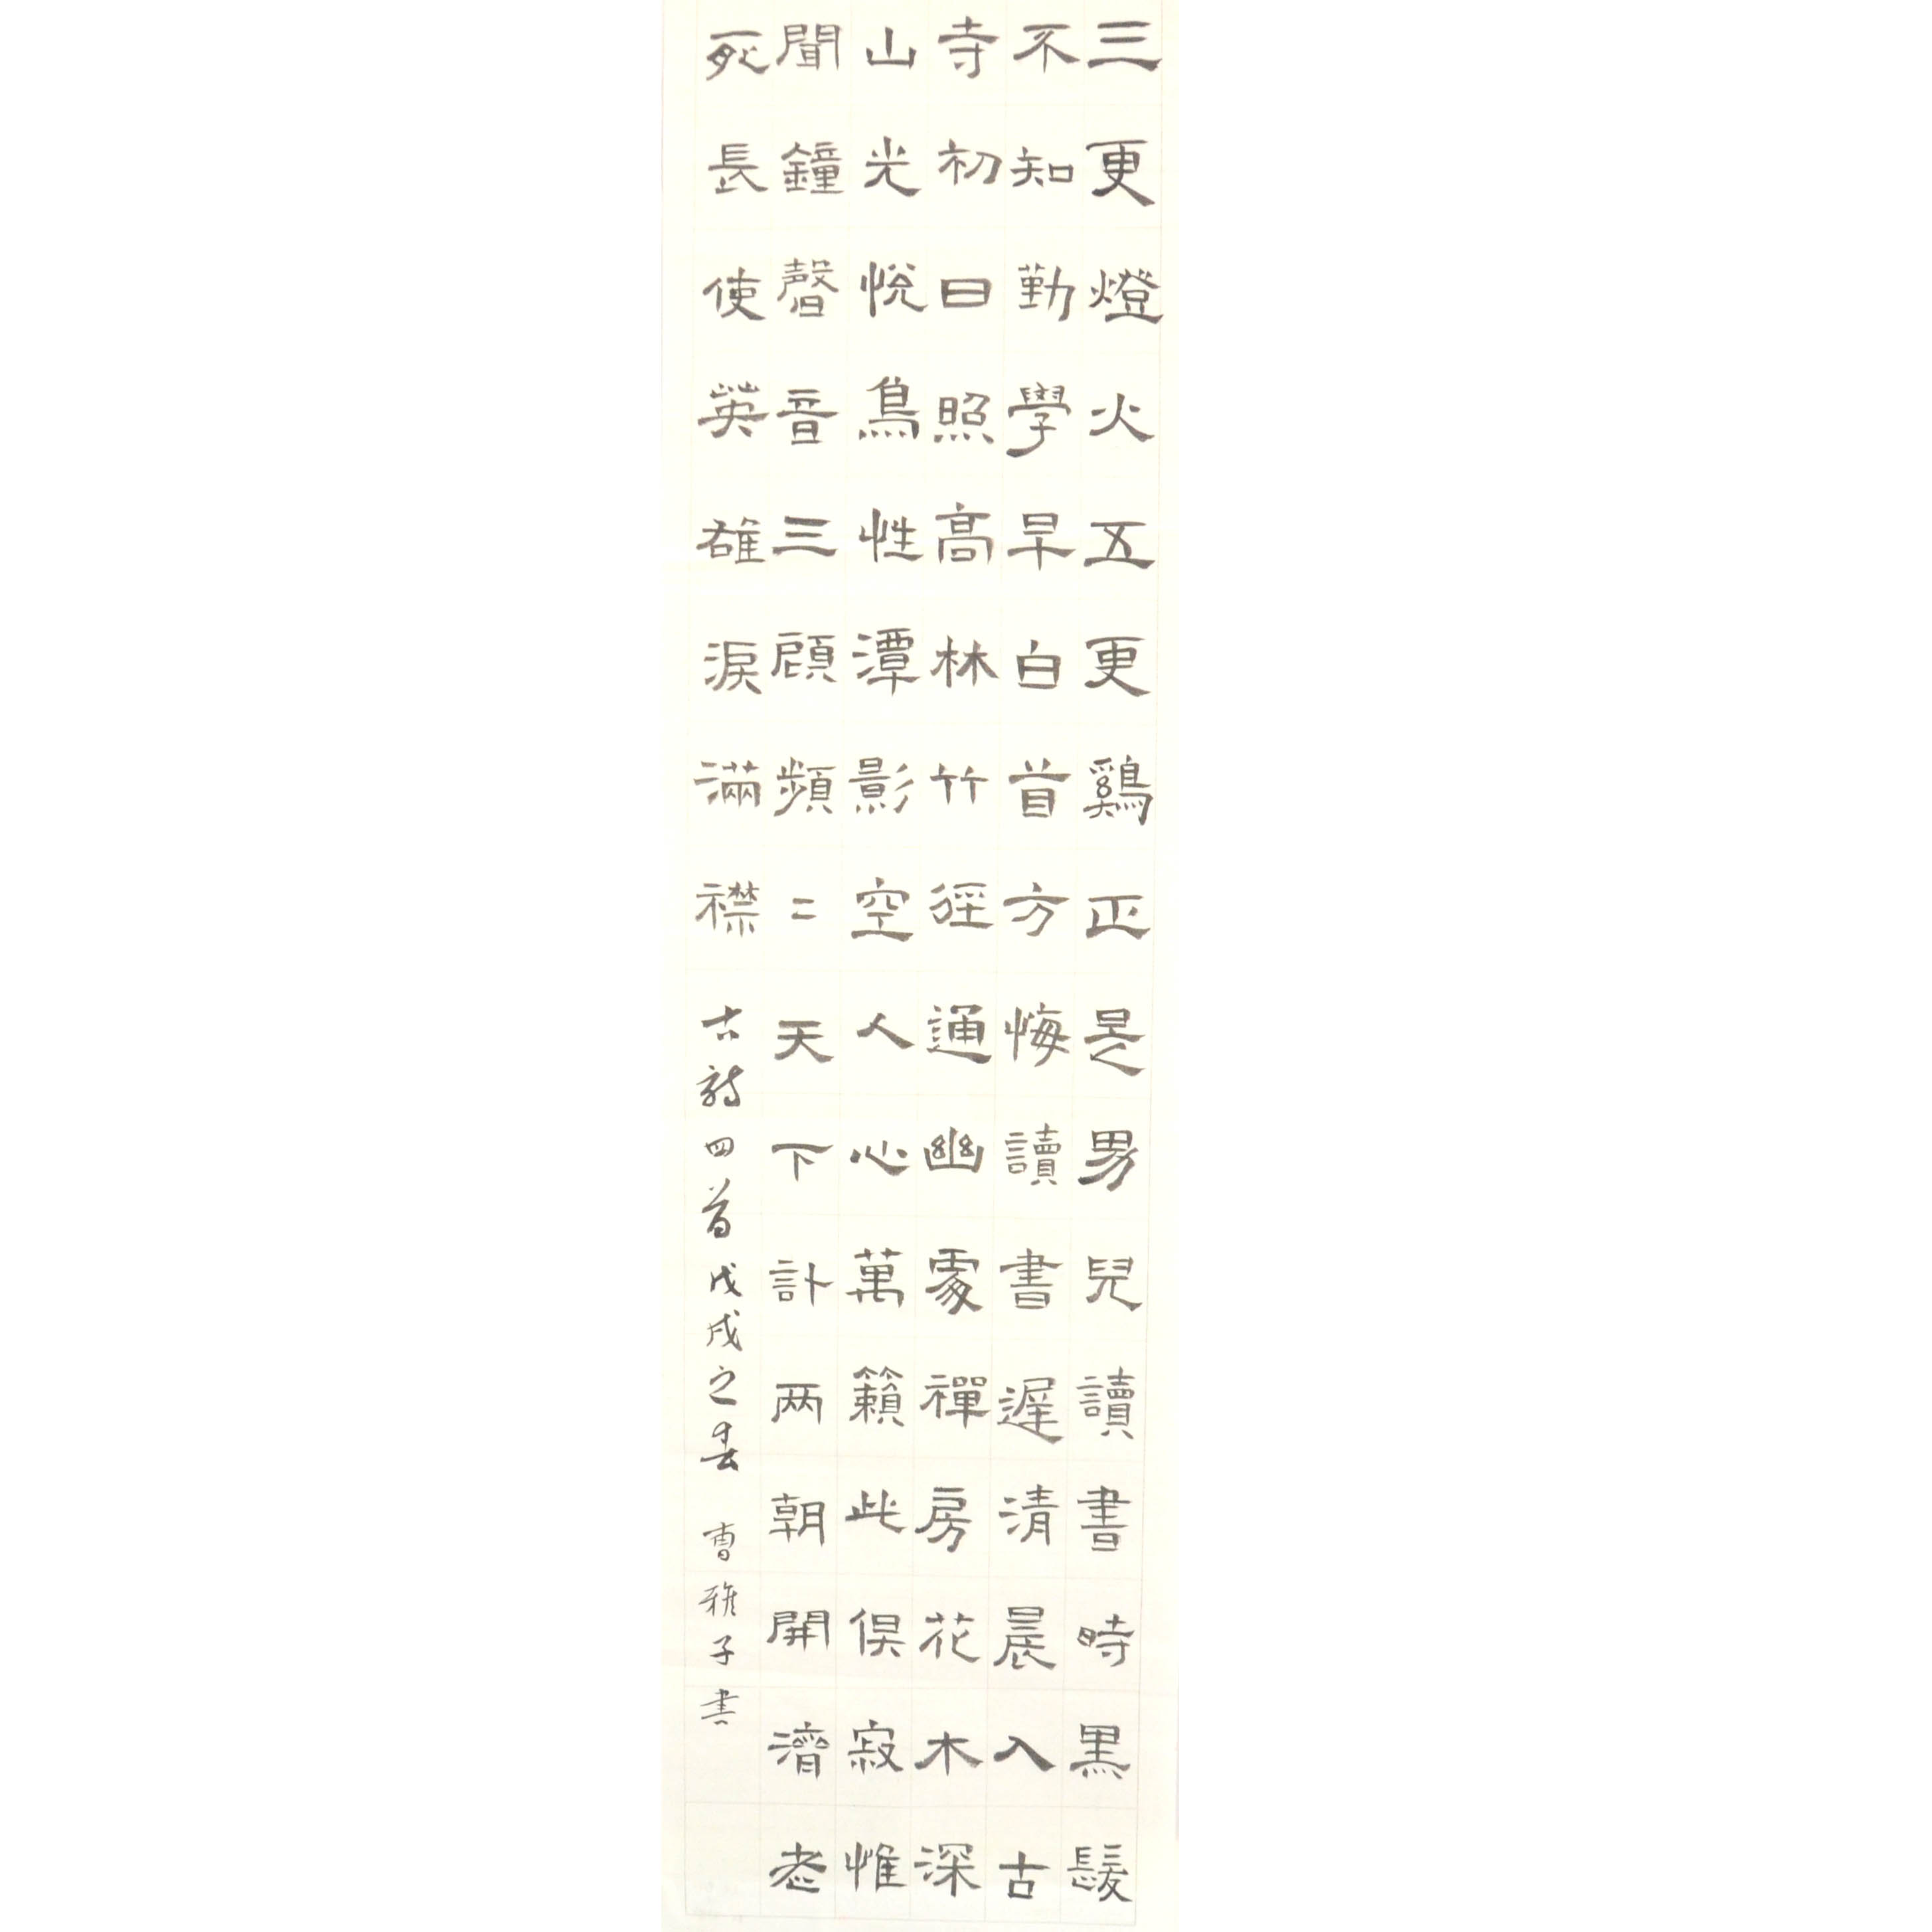 三更燈火五更鷄正是男兒讀書時黒髮
不知勤學早白首方悔讀書遲清晨入古
寺初日照高林竹徑通幽處禪房花木深
山光悅鳥性潭影空人心萬籟此俱寂惟
聞鐘磬音三顧頻二天下計两朝開濟老
死長使英雄淚滿襟 古詩四首戊戌之春 曹雅子書